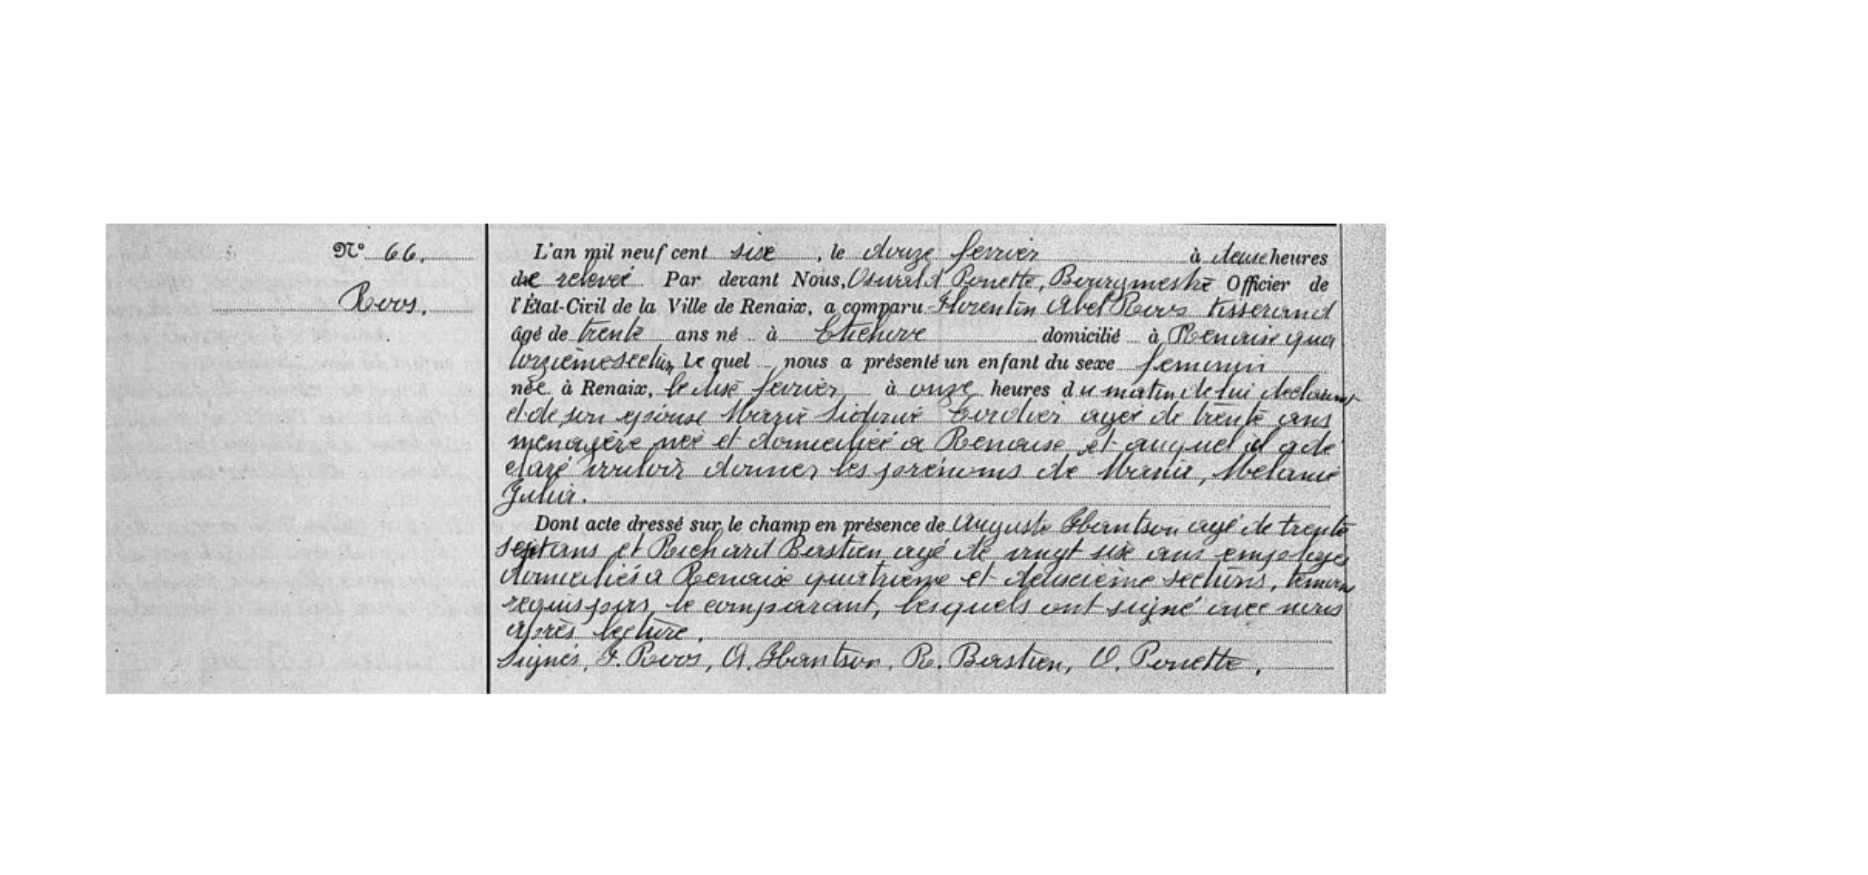 N° 66.
Roos.
L'an mil neuf cent sixe, le douze fevrier à deux heures
de relevée Par devant Nous, Oswald Ponette, Bourgmestre Officier de
l'État-Civil de la Ville de Renaix, a comparu Florentin Abel Roos tisserand
âgé de trente ans né à Etichove domicilié à Renaix qua
torzième section Le quel nous a présenté un enfant du sexe feminin
née à Renaix, le dix fevrier à onze heures du matin de lui declarant
et de son epouse Marie Sidonie Cordier agée de trente ans
menagère née et domiciliée a Renaix et auquel il a dé
claré vouloir donner les prénoms de Maria, Melanie
Julia.
Dont acte dressé sur le champ en présence de Auguste Hantson agé de trente
sept ans et Richard Bastien agé de vingt six ans employés
domiciliés a Renaix quatrième et deuxième sections, temoins
requis par le comparant, lesquels ont signé avec nous
après lecture.
Signés, F. Roos, A. Hantson, R. Bastien, O. Ponette,